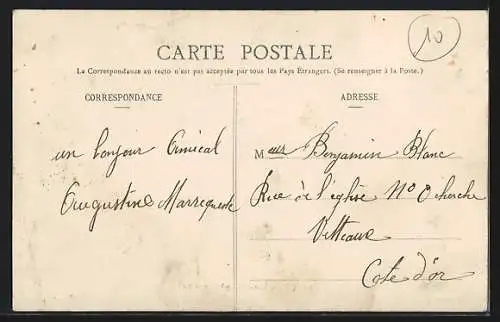 10
CARTE POSTALE
La Correspondance au recto n'est pas acceptée par tous les Pays Etrangers. (Se renseigner à la Poste.)
CORRESPONDANCE
un bonjour Amical
Augustine
ADRESSE
Meur Benjamin Blanc
Rue de l'eglise No
Vitteaux
Cote d'or